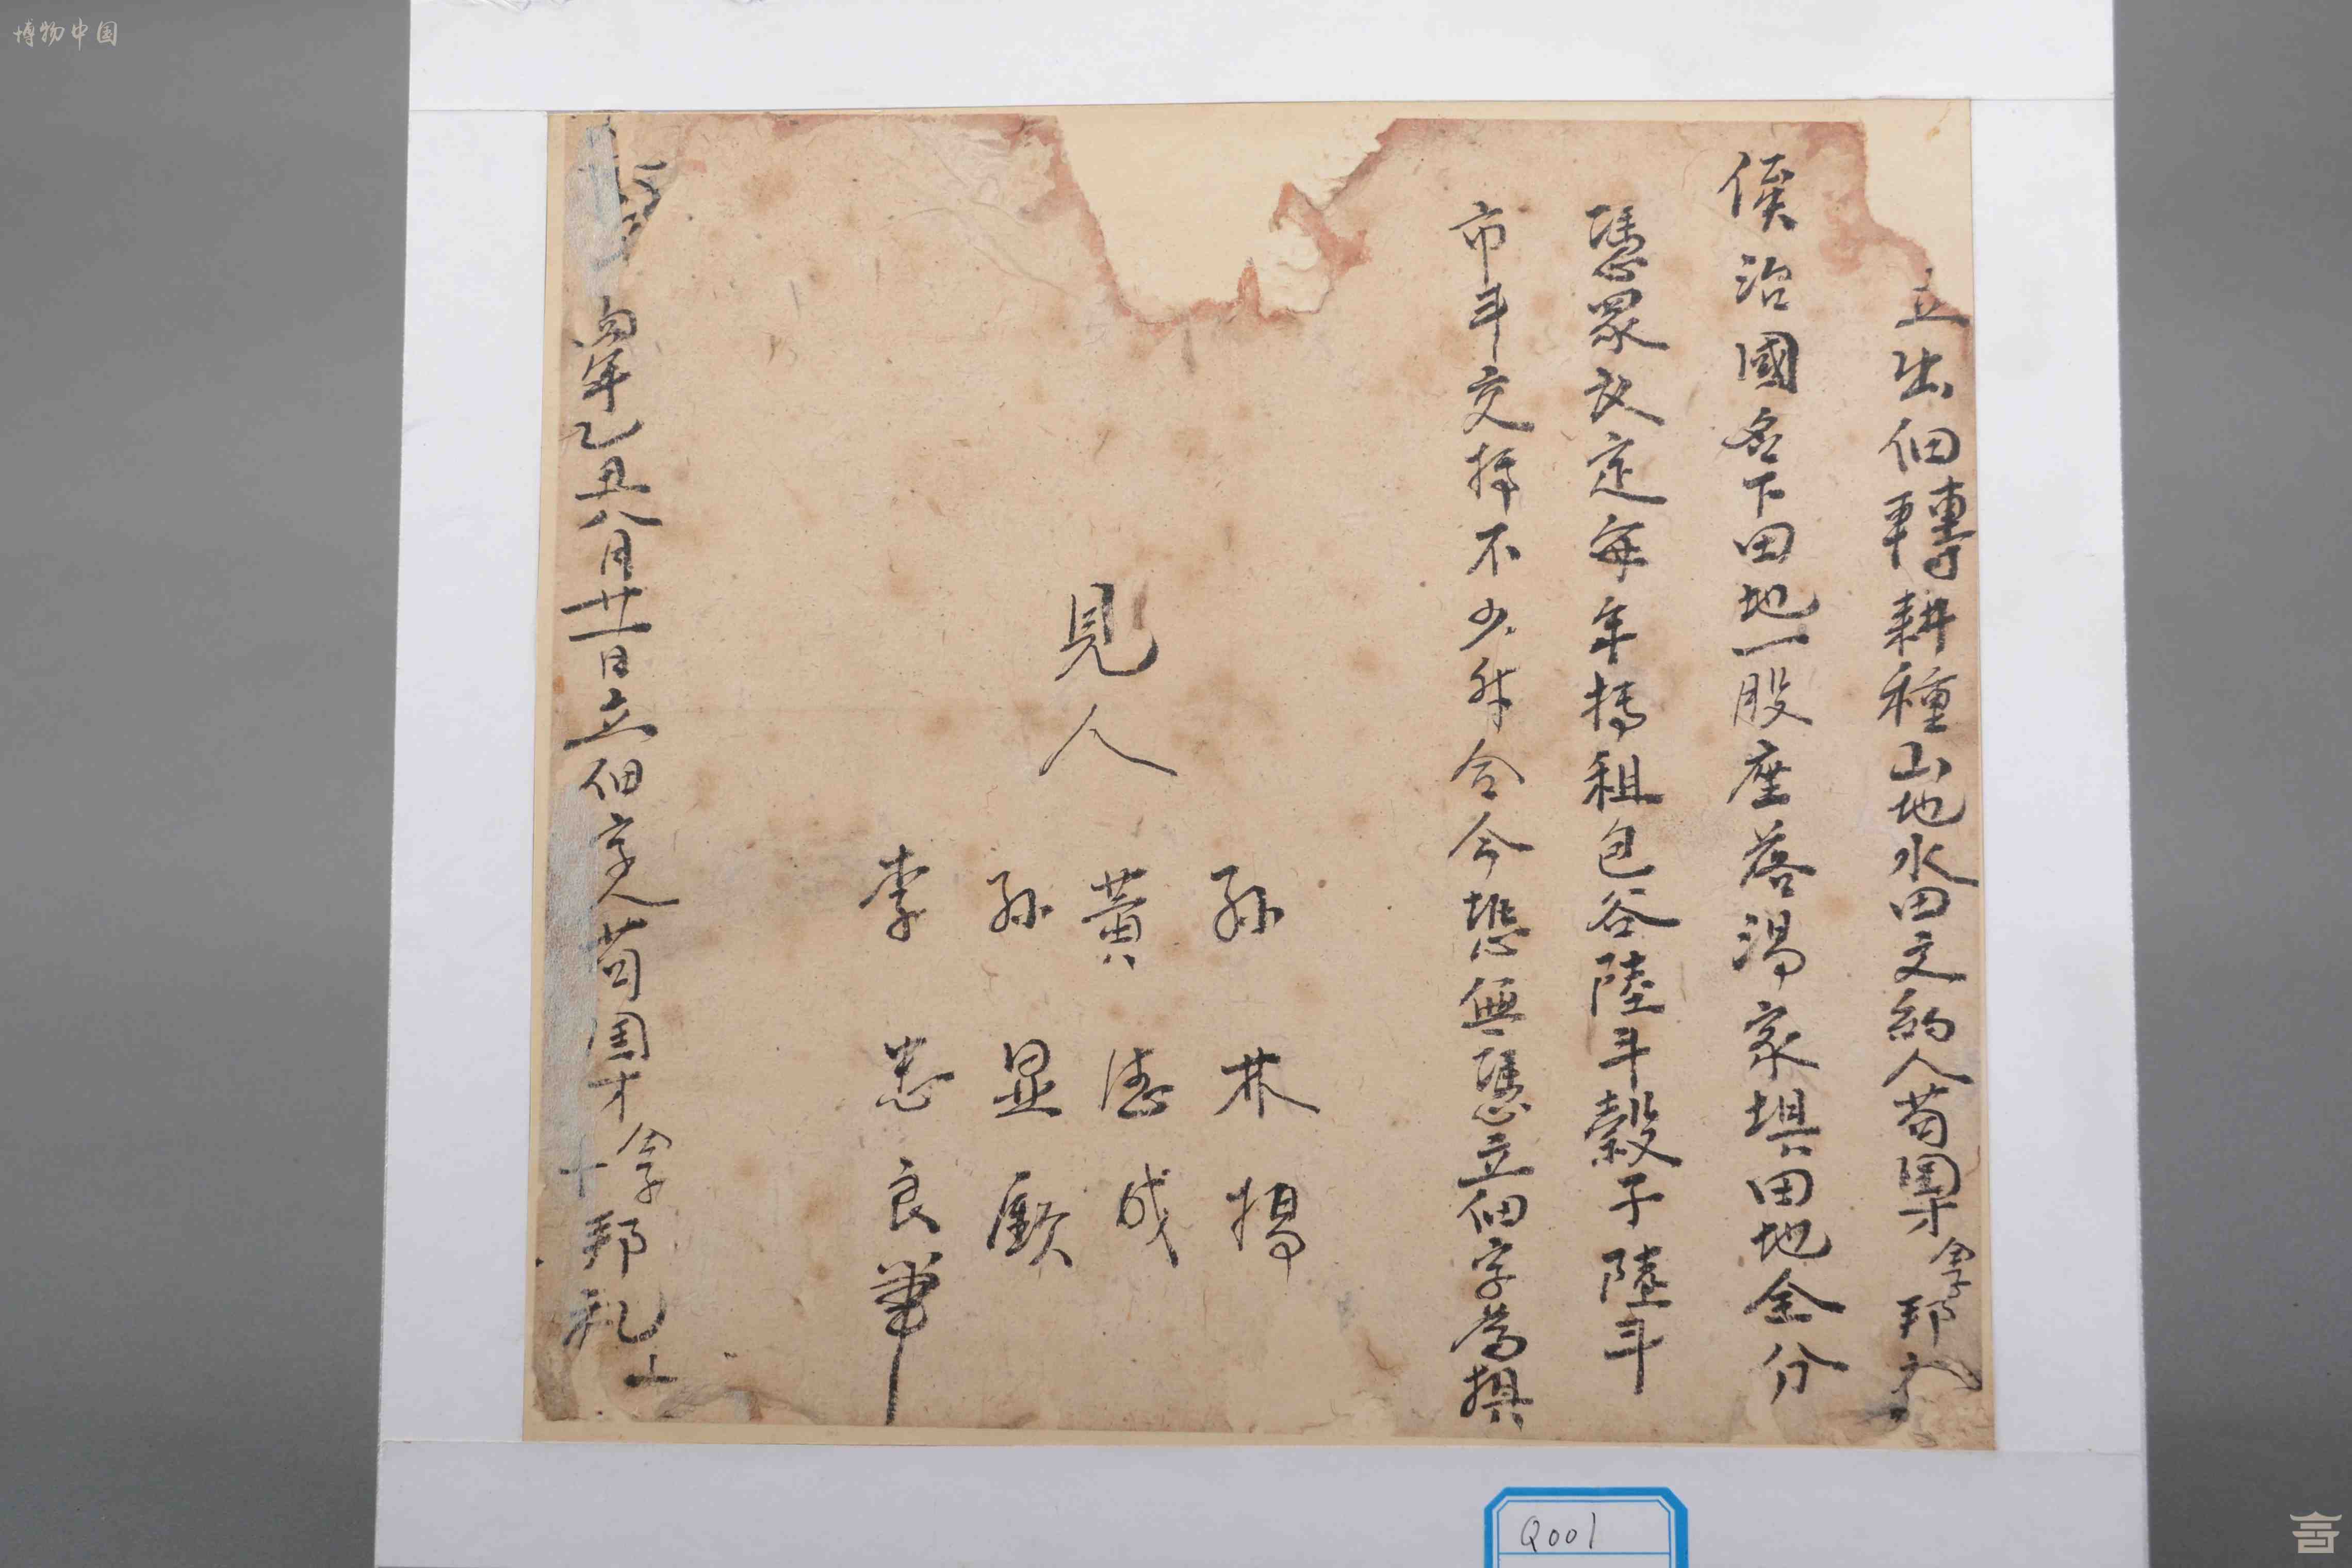 博物中国
立出佃轉耕種山地水田文約人苟国才仝子邦礼
侯治國名下田地一股座落湯家埧田地全分
憑眾议定每年撝租包谷陸斗穀子陸斗
市斗交撁不少升合今恐無憑立佃字為據
見人
孫林揚
黃德成
孫显歐
李忠良筆
年乙丑八月廿一日立佃字人苟國才仝子邦礼
十
Q001